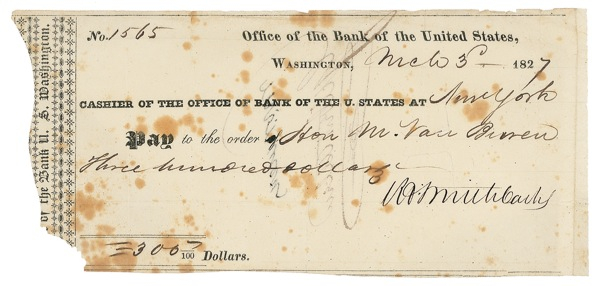 of the Bank U. S. Washington.
No. 1565
Office of the Bank of the United States,
Washington, Mch 3d 1827
CASHIER OF THE OFFICE OF BANK OF THE U. STATES AT New York
Pay to the order of Hon M. Van Buren
Three hundred dollars
Cashr
=300 /100 Dollars.